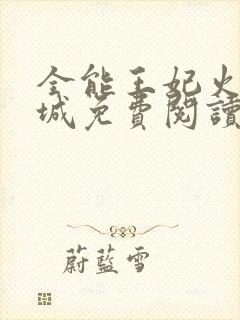 全能王妃火
城免費閱讀
蔚藍雪